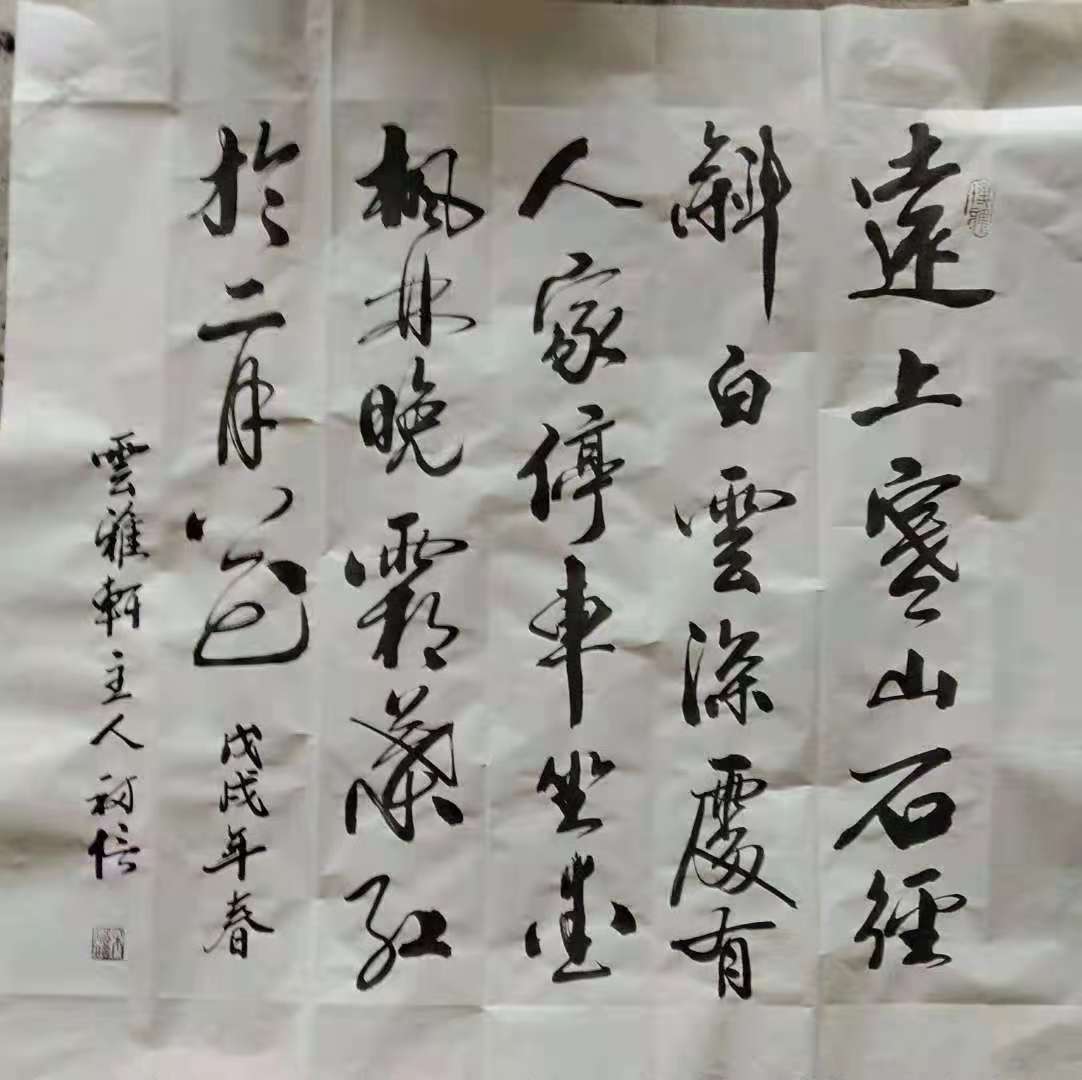 遠上寒山石徑
斜白雲深處有
人家停車坐愛
楓林晚霜葉紅
於二月花
戊戌年春
雲雅軒主人